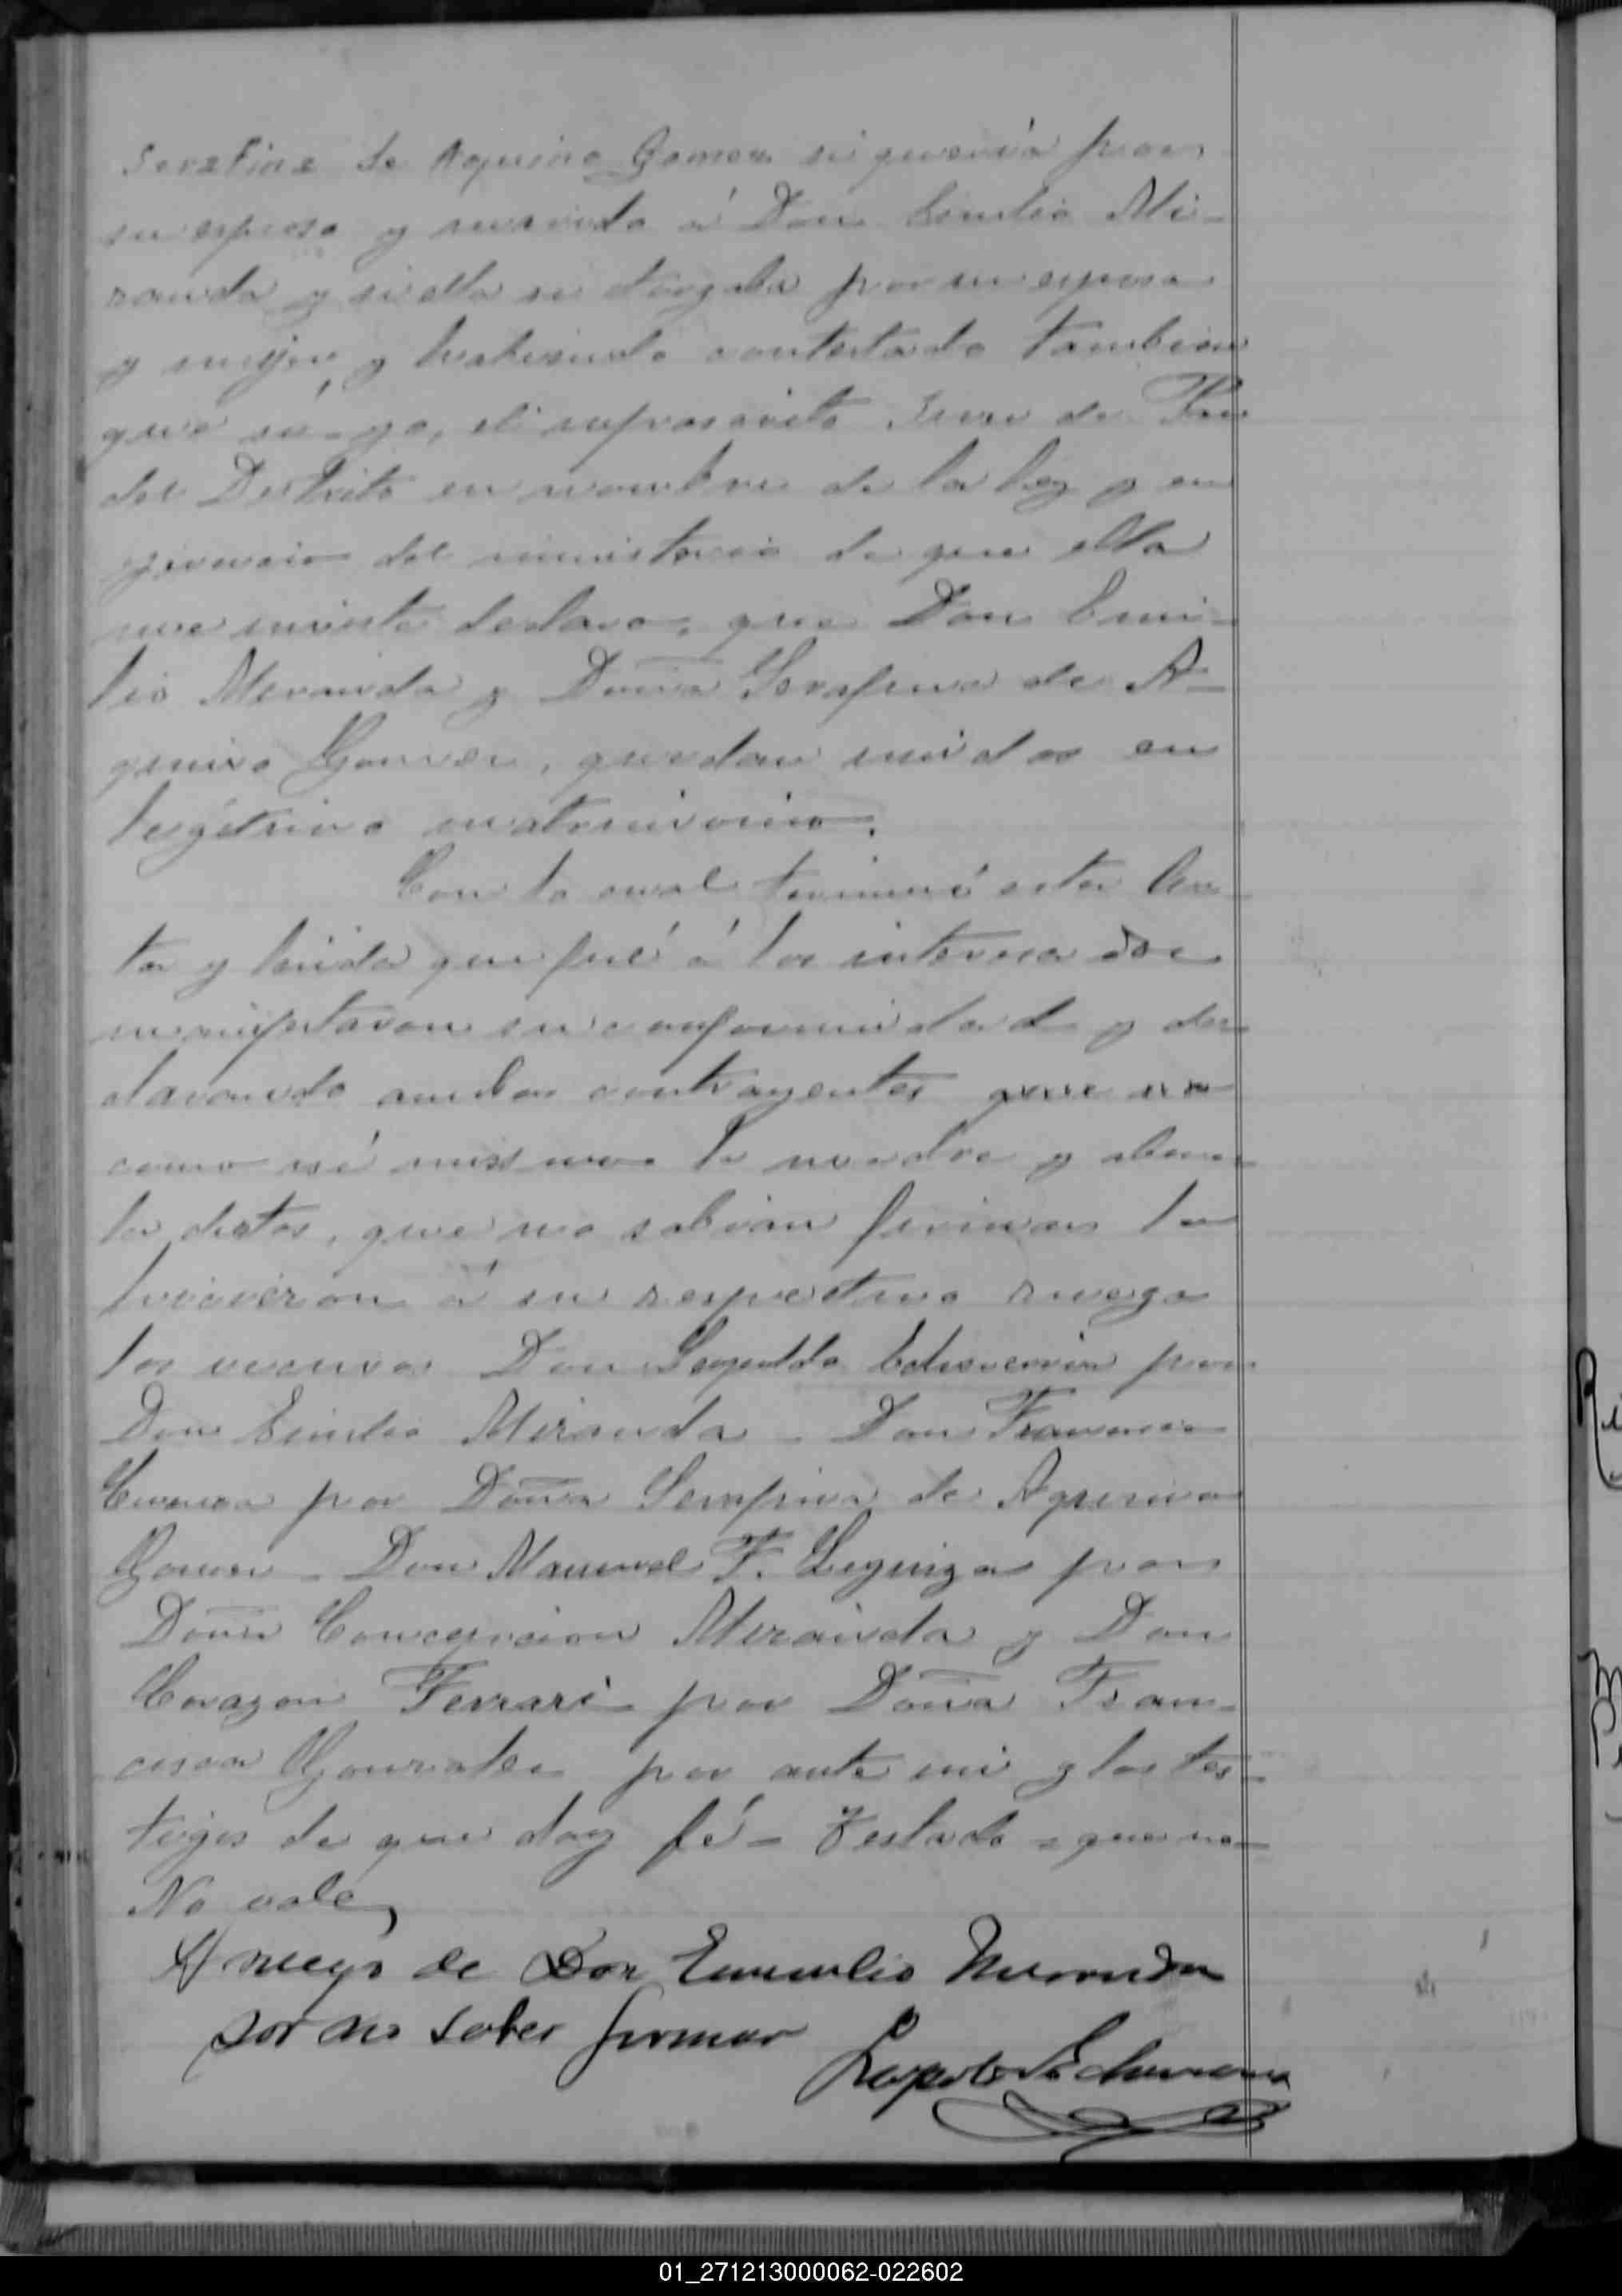 Serafina de Aquino Gomez si queria por
su esposo y marido á Don Emilio Mi-
randa y si ella se otorgaba por su esposa
y mujer, y habiendo contestado tambien
que sí - yo, el infrascrito Juez de Paz
del Distrito en nombre de la ley y en
ejercicio del ministerio de que ella
me inviste declaro, que Don Emi-
lio Miranda y Doña Serafina de A-
quino Gomez, quedan unidos en
legítimo matrimonio.
Con lo cual terminó esta Ac-
ta y leida que fué á los interesados
manifestaron su conformidad y de-
clarando ambos contrayentes que no
como así mismo la madre y abue-
la dictas, que no sabian firmar lo
hicieron á su respectivo ruego
los vecinos Don Leopoldo Echeverria por
Don Emilio Miranda - Don Francisco
por Doña Serafina de Aquino
Gomez - Don Manuel F. Leguiza por
Doña Concepcion Miranda y Don
Corazon Ferrari por Doña Fran-
cisca Gonzalez por ante mi y los tes-
tigos de que doy fé - Testado = que no =
No vale,
A ruego de Don Emilio Miranda
por no saber firmar
Leopoldo Echeverria
01_271213000062-022602